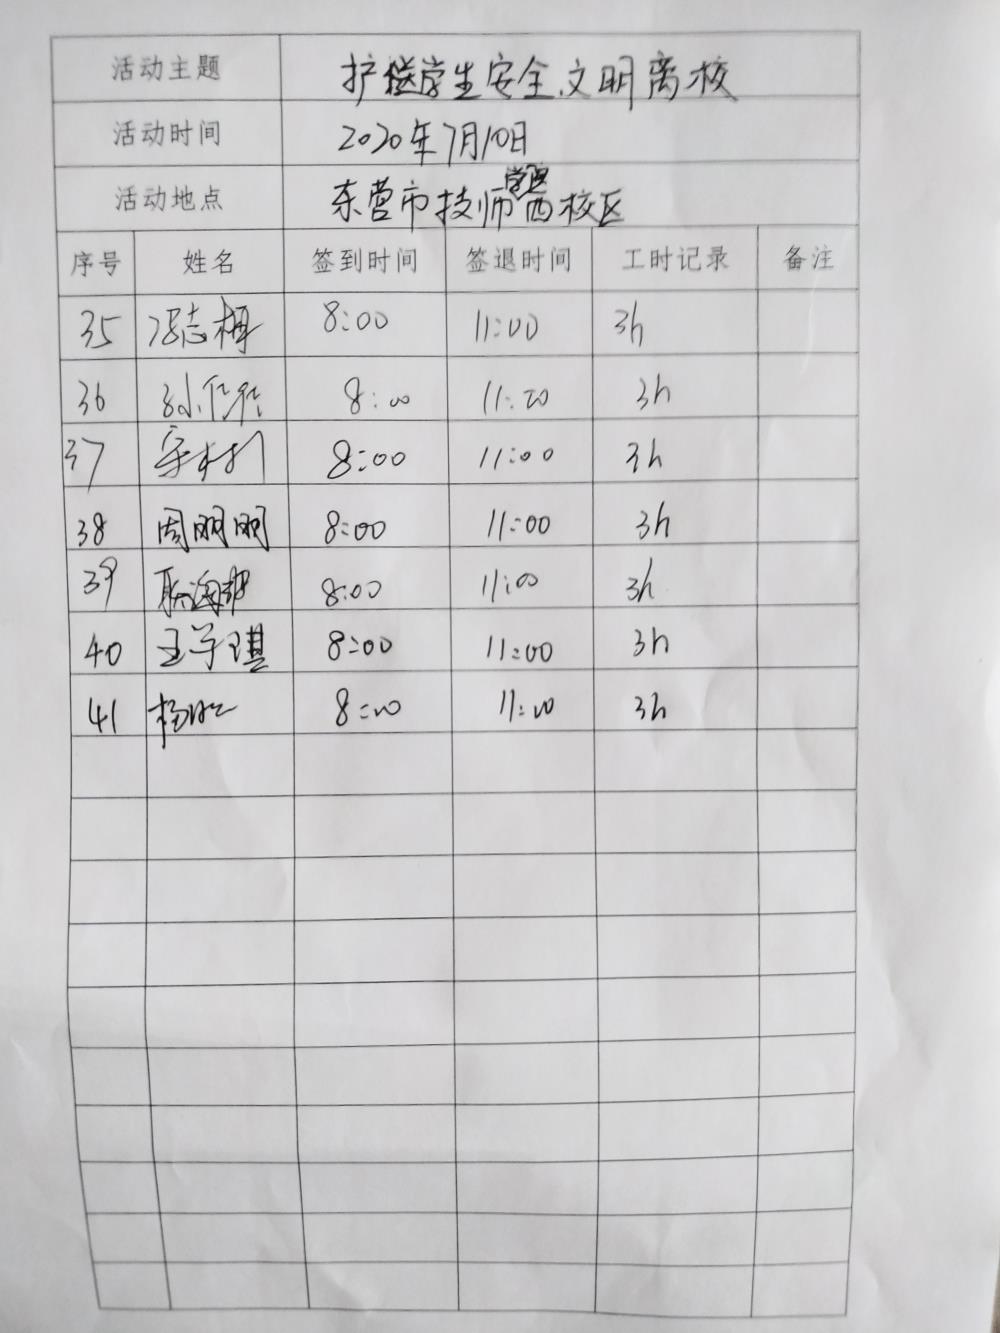 活动主题 护送学生安全文明离校
活动时间 2020年7月10日
活动地点 东营市技师学院西校区
序号 姓名 签到时间 签退时间 工时记录 备注
35 冯志梅 8:00 11:00 3h
36 孙 8:00 11:00 3h
37 8:00 11:00 3h
38 周丽丽 8:00 11:00 3h
39 8:00 11:00 3h
40 王学琪 8:00 11:00 3h
41 杨 8:00 11:00 3h